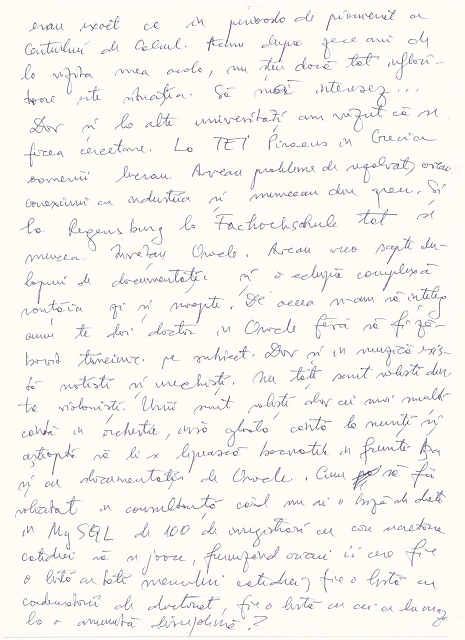 erau exact ce in perioada de pionierat a
Centrului de Calcul. Acum dupa zece ani de
la vizita mea acolo, nu stiu dacă tot
este situația. Să mai intersez...
Dar și la alte universități am văzut că se
facea cercetare. La TEI Piraeus in Grecia
oamenii lucrau. Aveau probleme de rezolvat, aveau
conexiuni cu industria și munceau din greu. Și
la Regensburg la Fachochschule tot se
muncea. Invățau Oracle. Aveau vreo sapte
lapuri de documentații și o echipă complexă
și și noapte. De aceea n-am să inteleg
cum te dai doctor in Oracle fără să fi
bovit tinciunic pe subiect. Dar și in muzică exis-
tă notiști și urechiști. Nu toti sunt soliști din-
tre violoniști. Unii sunt soliști dar cei mai mulți
cantă in orchestre, insă gloata cantă la nunți și
așteaptă să li se lipească bacnotele in frunte
și cu documentații de Oracle. Cum să fii
solicitat in consultanță când nu ai o bază de date
in MySQL de 100 de inregistrări cu care
catedrei să se joace, furnizand oricui ii cere fie
o listă cu toti membrii catedrei, fie o listă cu
conducatorii de doctorat, fie o listă cu cei ce lucreaza
la o anumită disciplină?